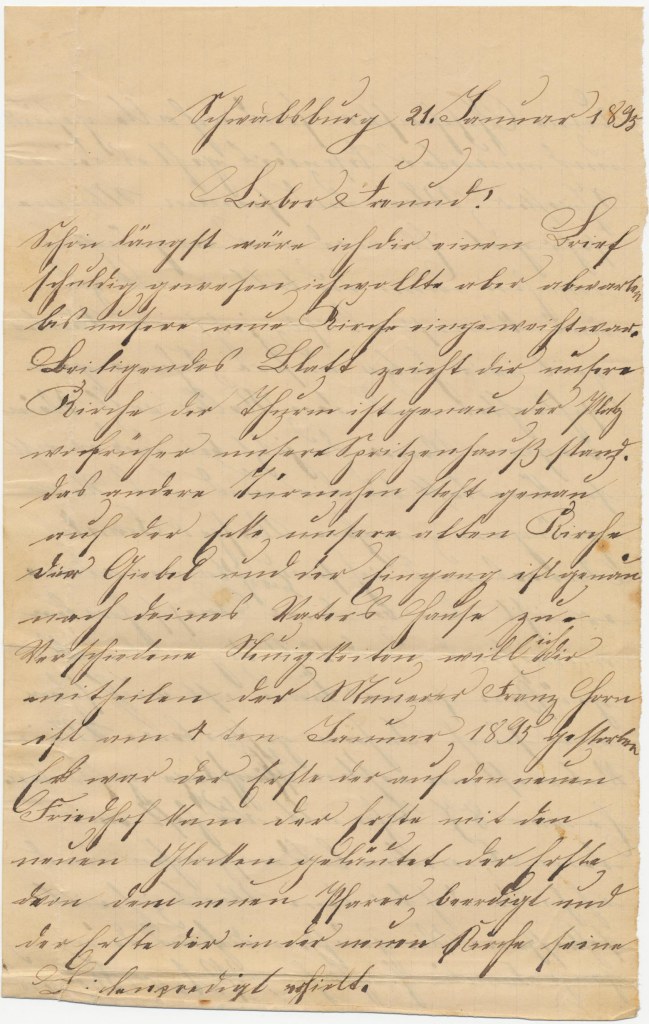 Schwabsburg 21. Januar 1895
Lieber Freund!
Schon längst wäre ich dir einen Brief
schuldig gewesen, ich wollte aber abwarten
bis unsere neue Kirche eingeweiht war.
Beiligendes Blatt zeicht dir unsere
Kirche der Thurm ist genau der Platz
wo früher unsere Spritzenhauß stand.
das andere Türmchen steht genau
auf der Ecke unsere alten Kirche
der Giebel und der Eingang ist genau
nach deines Vaters Hause zu.
Verschiedene Neuigkeiten will ich dir
mittheilen der Maurer Franz Horn
ist am 4 ten Januar 1895 gestorben
Er war der Erste der auf den neuen
Friedhof kam der Erste mit den
neuen Glocken geläutet der Erste
von dem neuen Pfarer beerdigt und
der Erste der in der neuen Kirche seine
Leichenpredigt erhielt.